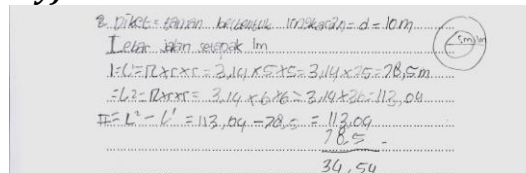 2. Diket = taman berbentuk lingkaran = d = 10m
Lebar jalan setapak 1m
5m 1m
I = L' = π x r x r = 3,14 x 5 x 5 = 3,14 x 25 = 78,5 m
= L2 = π x r x r = 3,14 x 6 x 6 = 3,14 x 36 = 113,04
II = L² - L' = 113,04 - 78,5 = 113,04
78,5 -
34,54